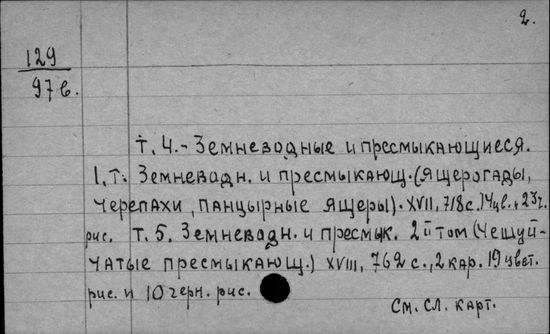 2.
129
97 в.
т. 4. - Земневодные и пресмыкающиеся.
1. т. Земневодн. и пресмыкающ. (ящерогады,
черепахи, панцырные ящеры). XVII, 718 с. 14 цв. и 23 ч.
рис. т. 5. Земневодн. и пресмык. 2й том (Чешуй-
чатые пресмыкающ.) XVIII, 762 с., 2 кар. 19 цвет.
рис. и 10 черн. рис.
См. сл. карт.